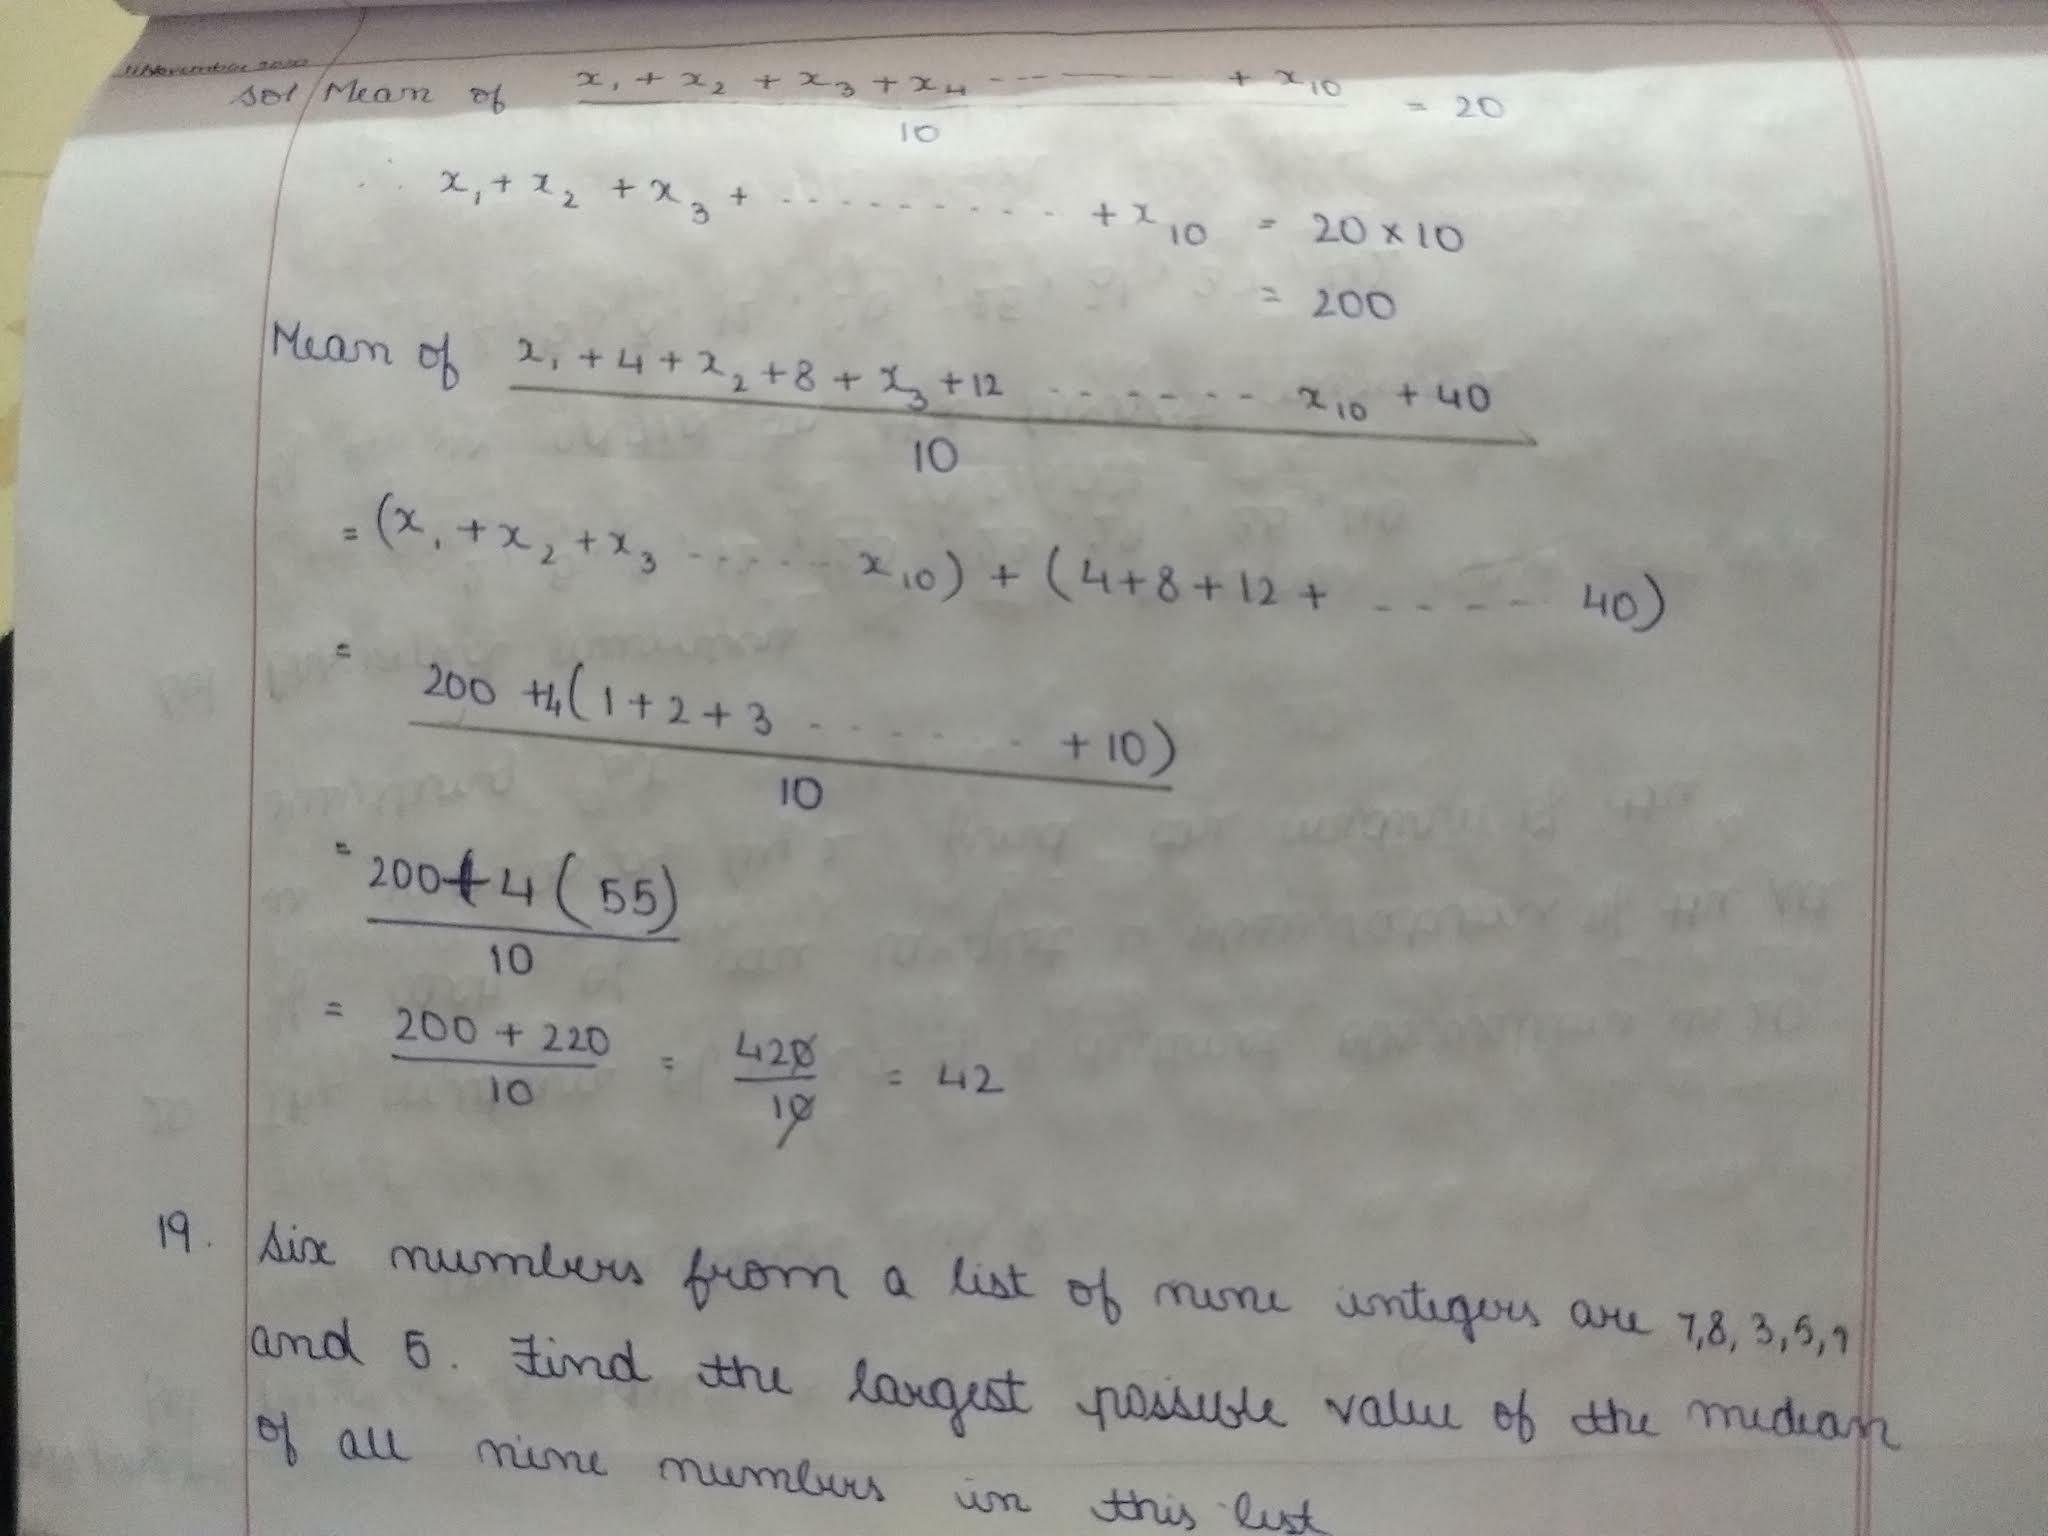 11 November 2020
Sol Mean of x₁ + x₂ + x₃ + x₄ ---------- + x₁₀ / 10 = 20
∴ x₁ + x₂ + x₃ + ---------- + x₁₀ = 20 × 10
= 200
Mean of x₁ + 4 + x₂ + 8 + x₃ + 12 ------- x₁₀ + 40 / 10
= (x₁ + x₂ + x₃ ------ x₁₀) + (4 + 8 + 12 + ----- 40)
= 200 + 4(1 + 2 + 3 ------ + 10) / 10
= 200 + 4 (55) / 10
= 200 + 220 / 10 = 420 / 10 = 42
19. Six numbers from a list of nine integers are 7, 8, 3, 5, 9
and 5. Find the largest possible value of the median
of all nine numbers in this list